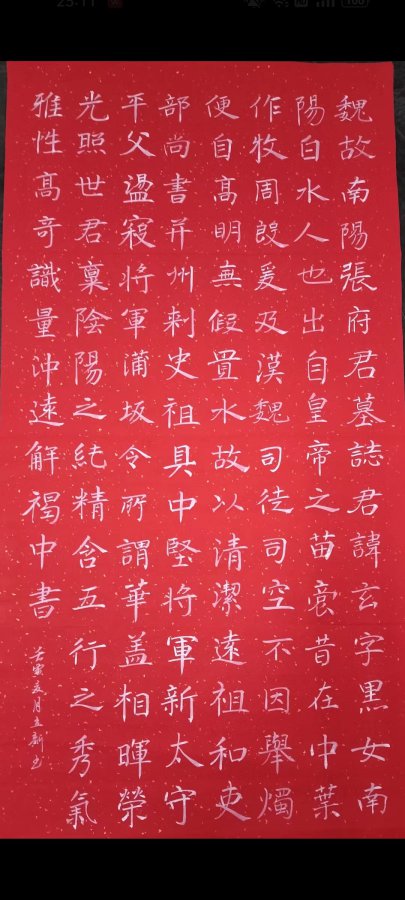 魏故南陽張府君墓誌君諱玄字黑女南
陽白水人也出自皇帝之苗裔昔在中葉
作牧周殷爰及漢魏司徒司空不因舉燭
便自高明無假置水故以清潔遠祖和吏
部尚書并州刺史祖具中堅將軍新太守
平父盪寇將軍蒲坂令所謂華蓋相暉榮
光照世君稟陰陽之純精含五行之秀氣
雅性高奇識量沖遠解褐中書
壬寅夏月立新书